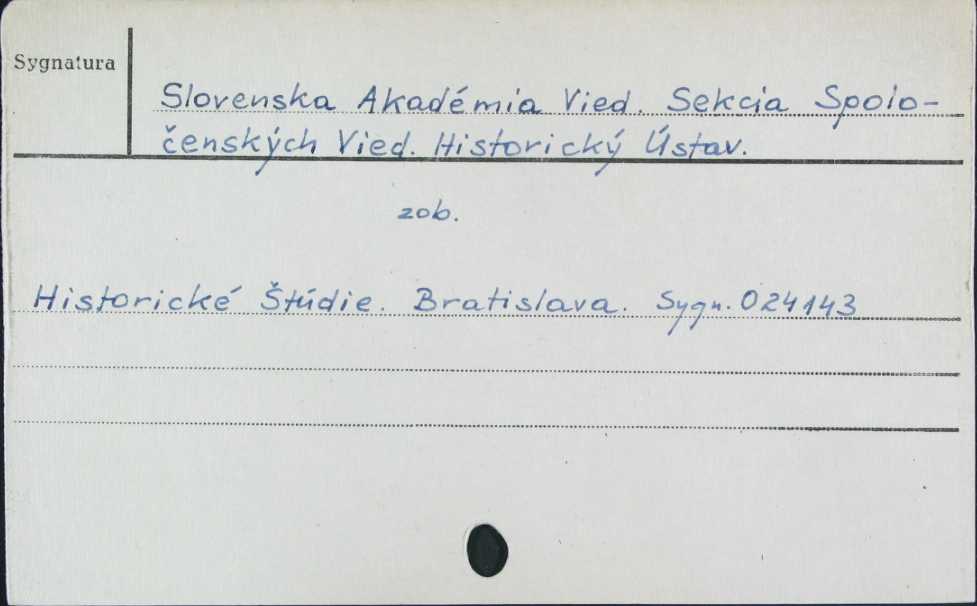 Sygnatura
Slovenska Akadémia Vied. Sekcia Spolo-
čenských Vied. Historický Ústav.
zob.
Historické Štúdie. Bratislava. Sygn. 024143